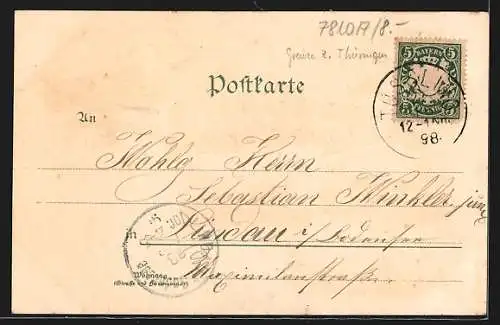 78LOA/8.-
Grenze z. Thüringen
Postkarte
5 BAYERN 5
PFENNIG
12-1 NM
98.
An
Wohlg Herrn
Sebastian Winkler jun.
in Lindau i/ Bodensee
Maximilianstraße.
Wohnung
(Straße und Hausnummer)